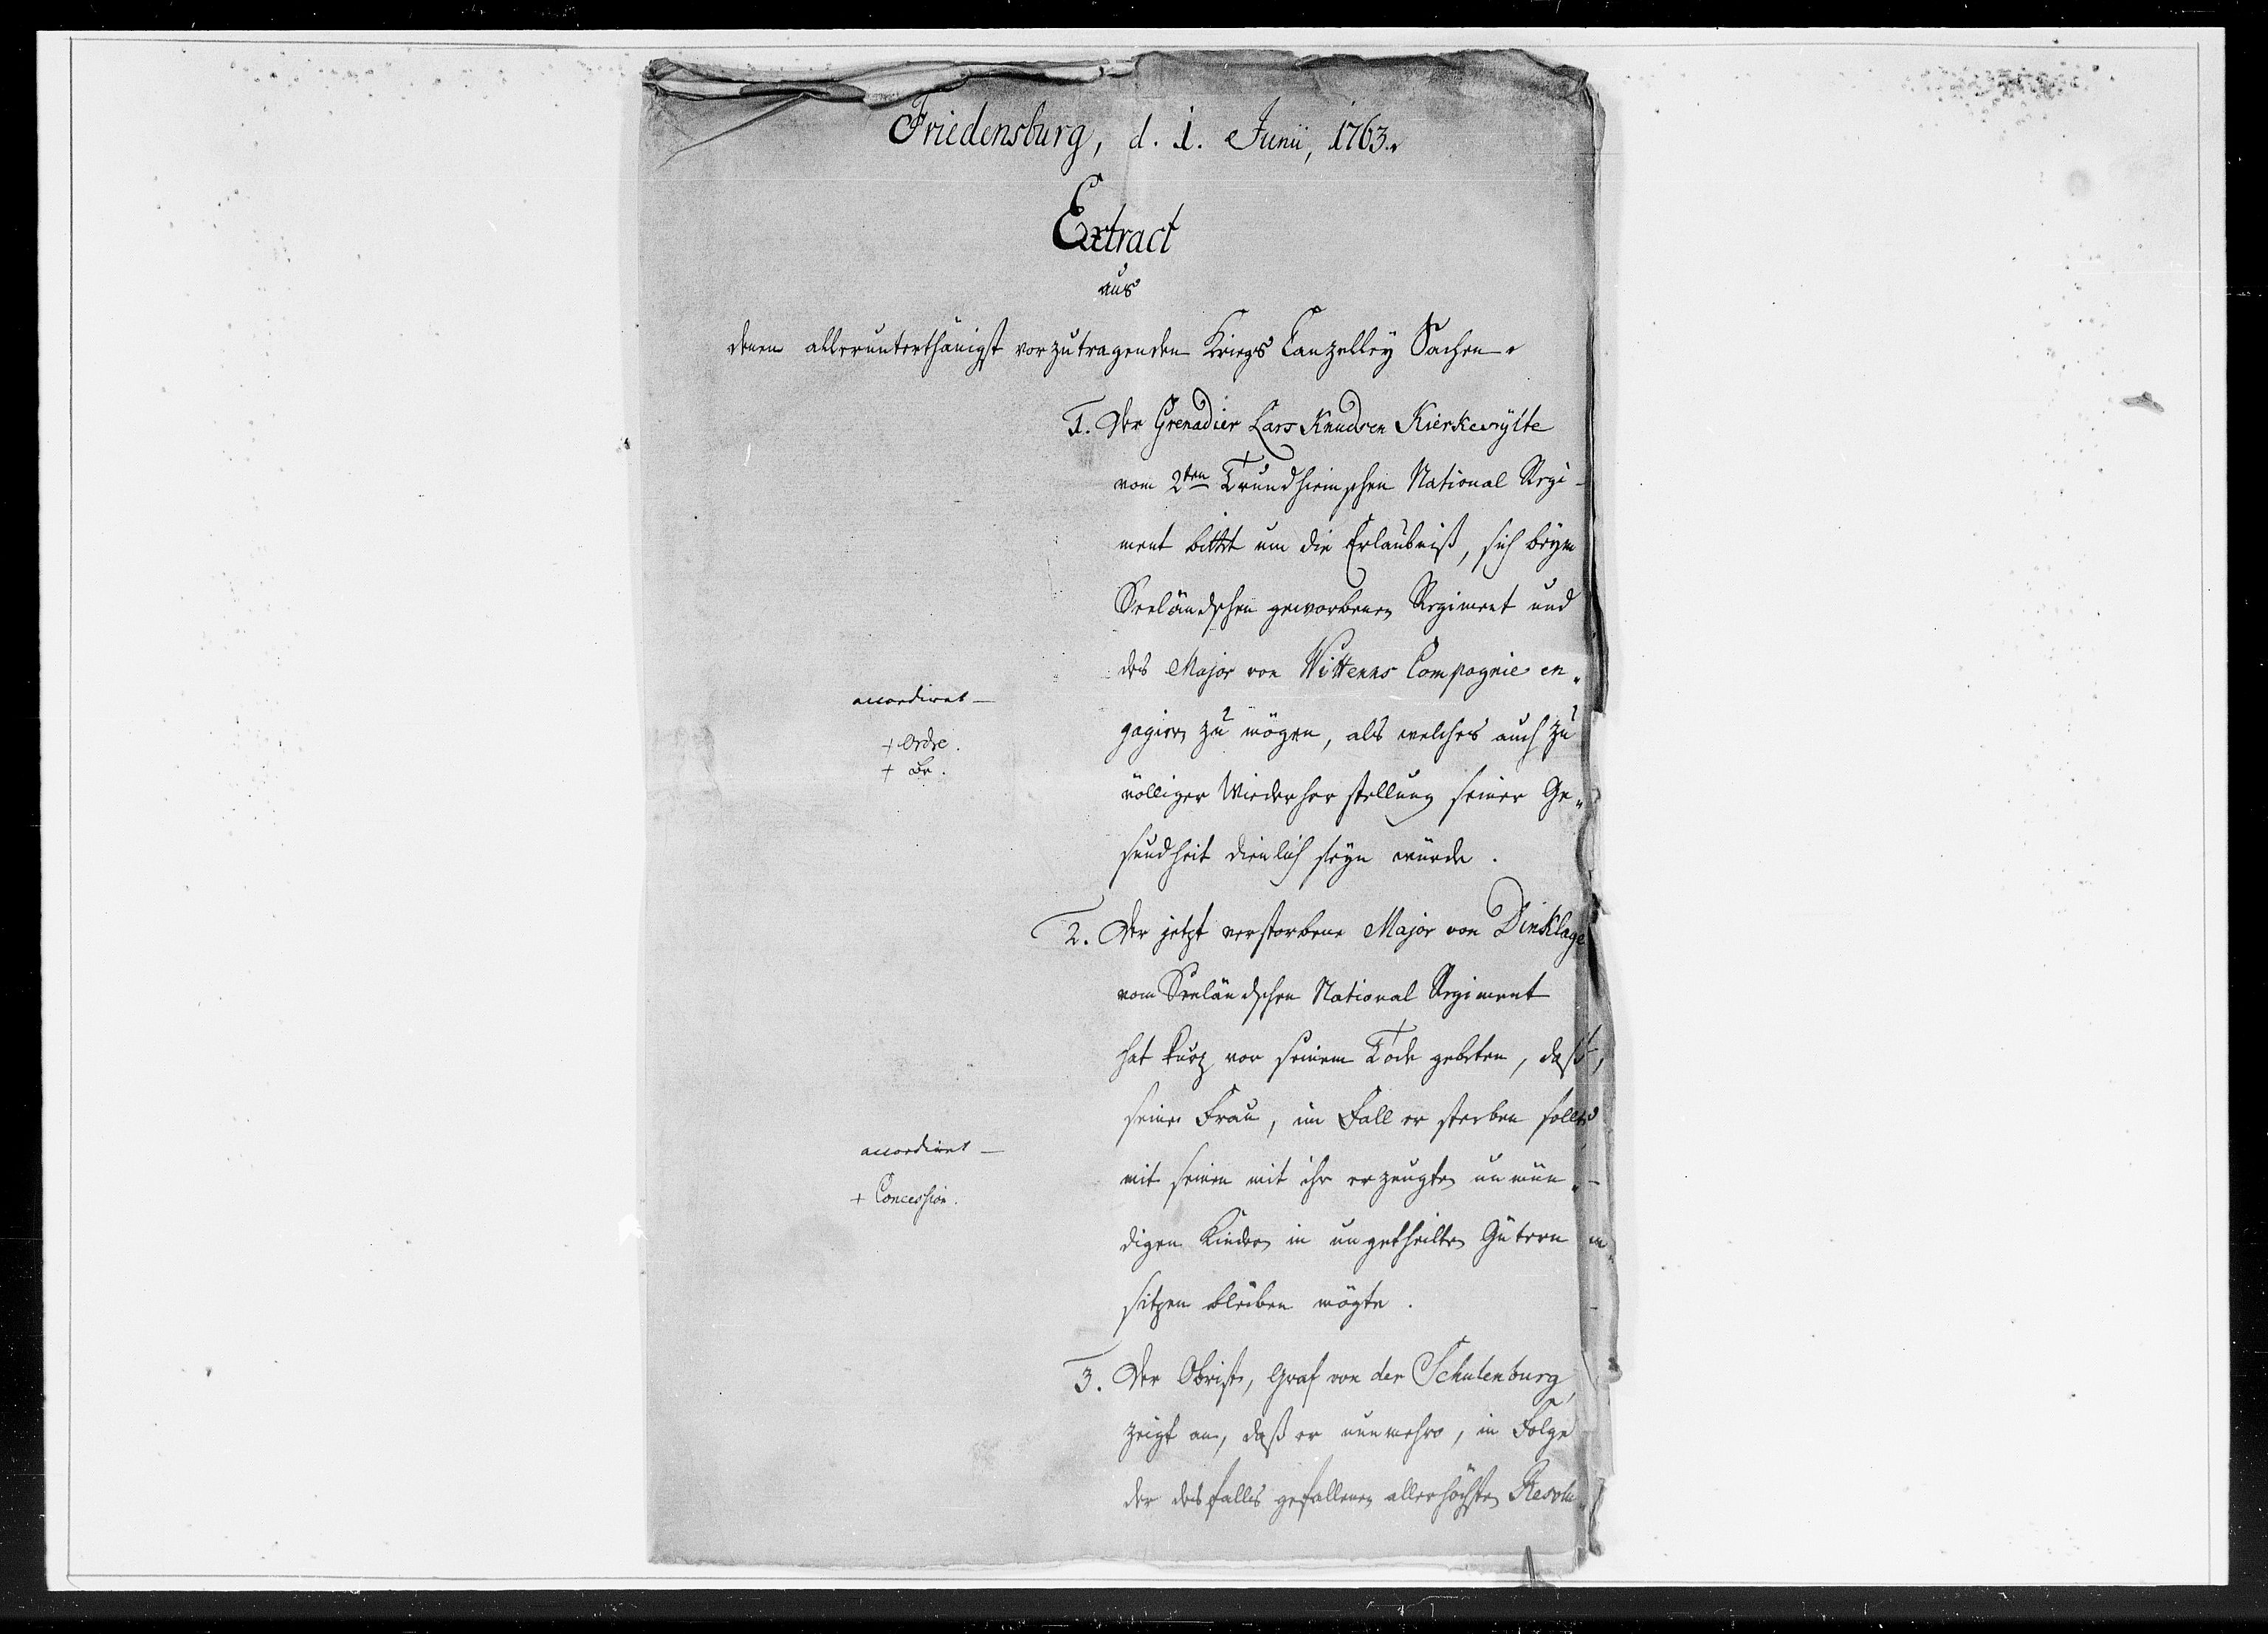 Friedensburg, d. 1. Junii, 1763.
Extract
aus
denen allerunterthänigst vorzutragenden Kriegs Canzelley Sachen.
1. Der Grenadier Lars Knudsen Kierkewylte
vom 2ten Trundheimschen National Regi-
ment bittet um die Erlaubniß, sich beym
Seeländschen geworbenen Regiment und
des Major von Wittenns Compagnie en„
gagiren zu mögen, als welches auch zu
völliger Wiederherstellung seiner Ge„
sundheit dienlich seyn würde.
accordiret –
+ Ordre.
+ Br.
2. Der jetzt verstorbene Major von Dinklage
vom Seeländschen National Regiment
hat kurz vor seinem Tode gebeten, daß,
seine Frau, im Fall er sterben sollte
mit seinen mit ihr erzeugten unmün„
digen Kindern in ungetheilten Gütern
sitzen bleiben mögte.
accordiret –
+ Concession.
3. Der Obriste, Graf von der Schulenburg,
zeigt an, daß er nunmehro, in Folge
der desfalls gefallenen allerhöchsten Resolu„